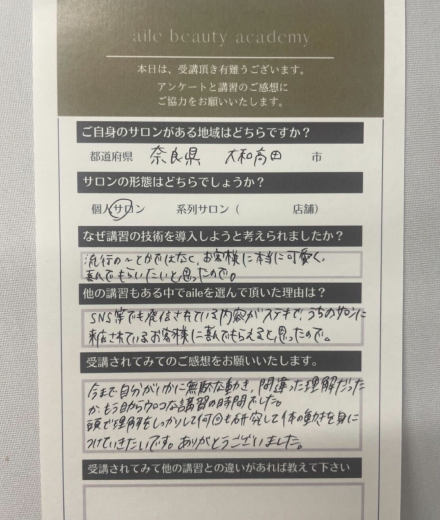 aile beauty academy
本日は、受講頂き有難うございます。
アンケートと講習のご感想に
ご協力をお願いいたします。
ご自身のサロンがある地域はどちらですか？
都道府県 奈良県 大和高田 市
サロンの形態はどちらでしょうか？
個人サロン 系列サロン（ 店舗）
なぜ講習の技術を導入しようと考えられましたか？
流行の ではなく、お客様に本当に可愛く、
喜んでもらいたいと思ったので。
他の講習もある中でaileを選んで頂いた理由は？
SNS等でも発信されている内容がステキで、うちのサロンに
来店されているお客様に喜んでもらえると思ったので。
受講されてみてのご感想をお願いいたします。
今まで自分がいかに無駄な動き、間違った理解だった
か、もう目からウロコな講習の時間でした。
頭で理解をしっかりして何回も研究して体の動きを身に
つけていきたいです。ありがとうございました。
受講されてみて他の講習との違いがあれば教えて下さい